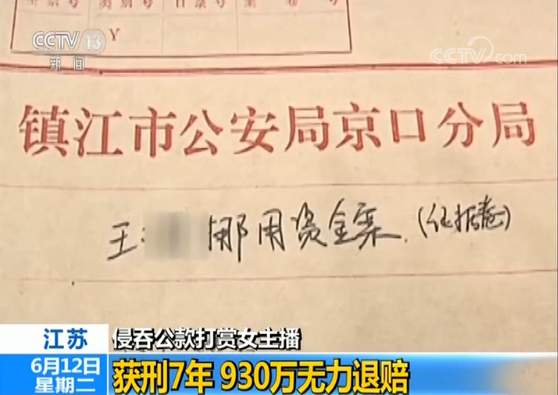 CCTV 13
新闻
CCTV.com
Y
镇江市公安局京口分局
王 挪用资金案.(证据卷)
江苏
6月12日
星期二
侵吞公款打赏女主播
获刑7年 930万无力退赔